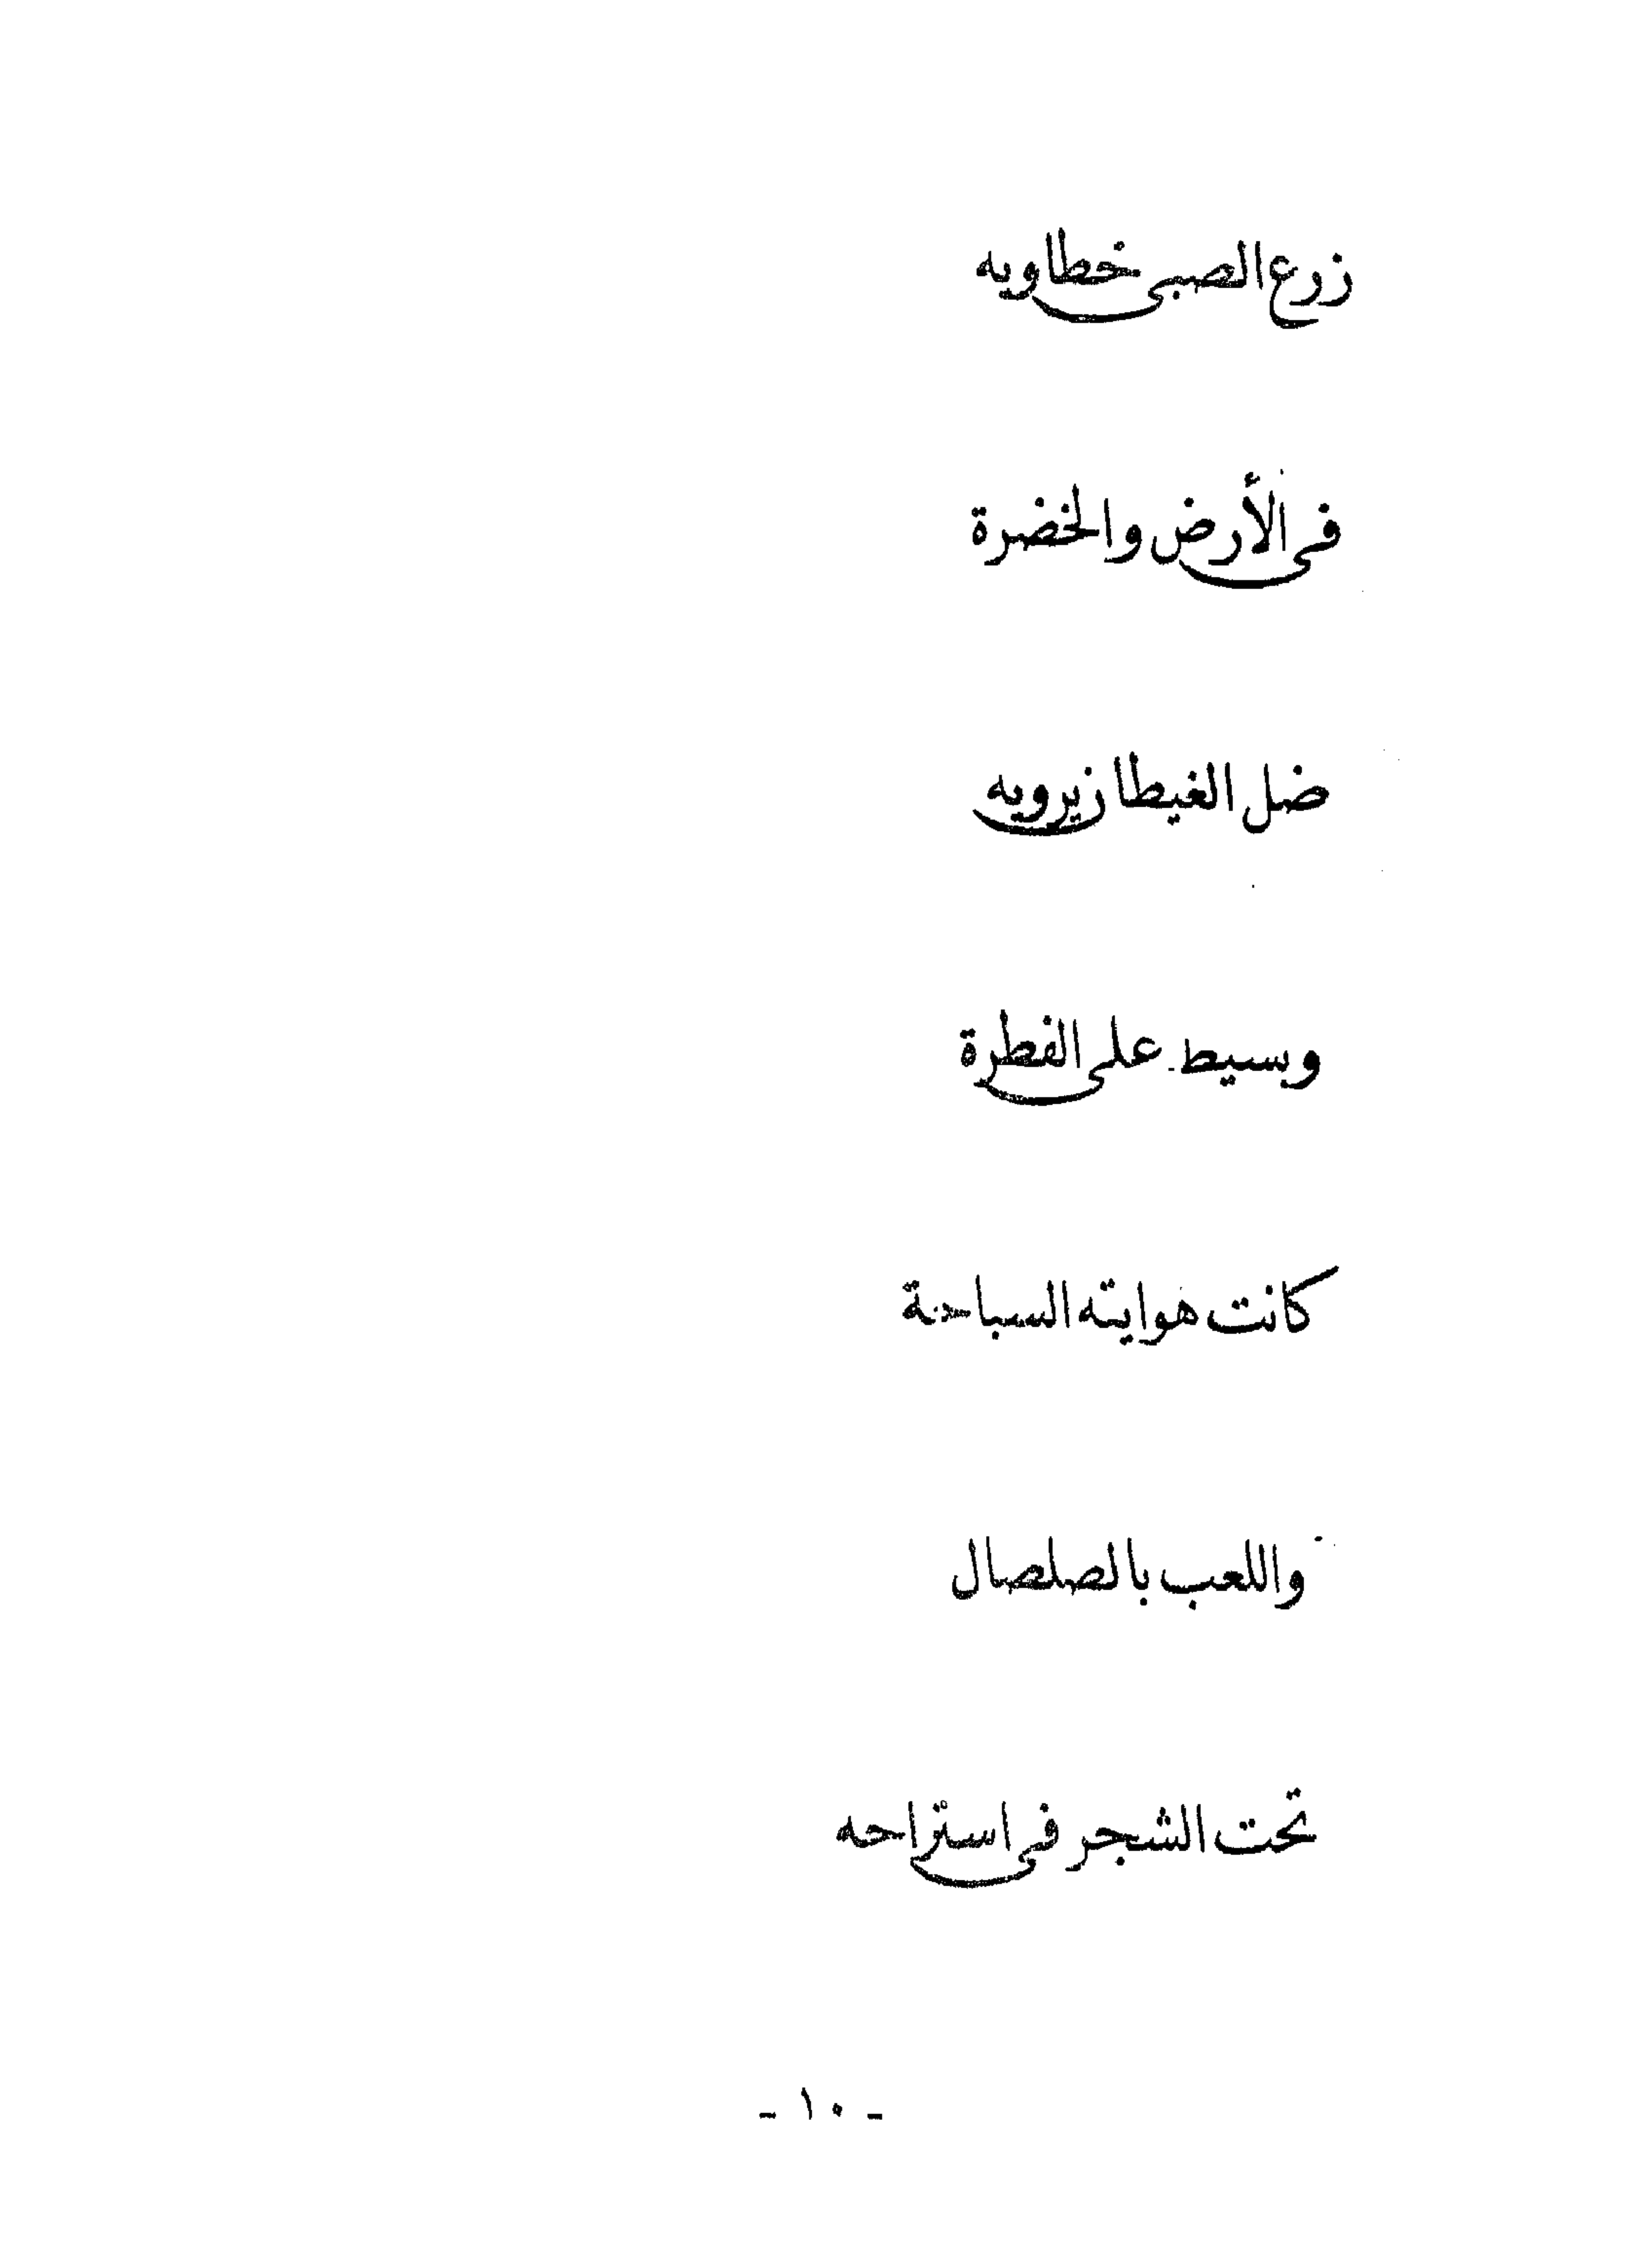 زرع الصبى خطاويه
فى الأرض والخضرة
ضل الغيطان يرويه
وبسيط على الفطرة
كانت هوايته السباحة
واللعب بالصلصال
تحت الشجر فى استراحه
- ١٠ -